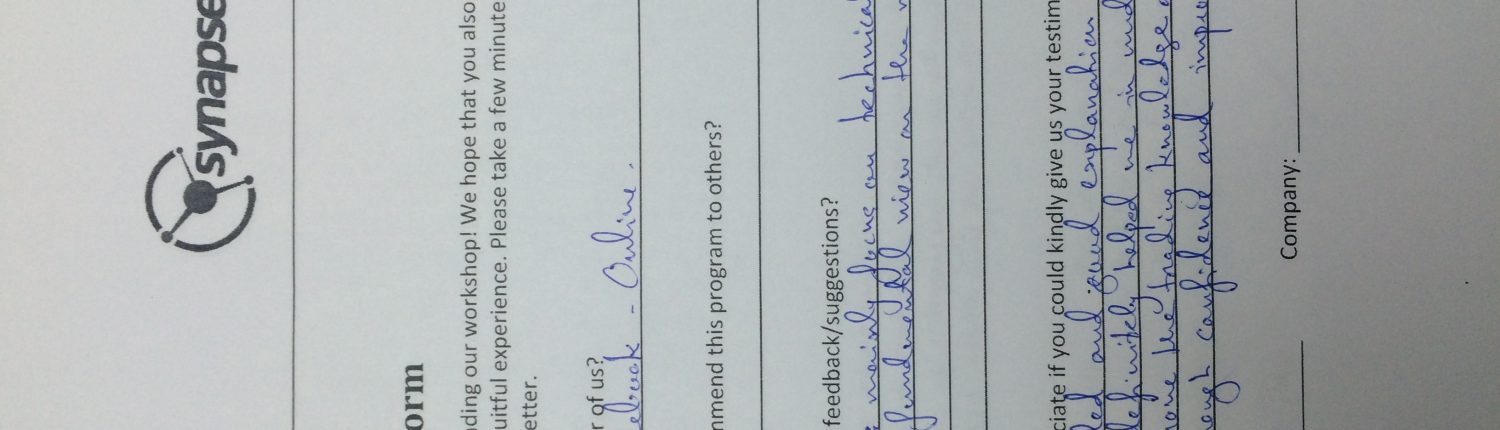 synapse
orm
ding our workshop! We hope that you also
uitful experience. Please take a few minute
etter.
r of us?
ebook - Online.
mmend this program to others?
feedback/suggestions?
mainly focus on technica
fundamental view on the
ciate if you could kindly give us your testim
led and good explanation
definitely helped me in und
more the trading knowledge
ough confidence and impro
Company: